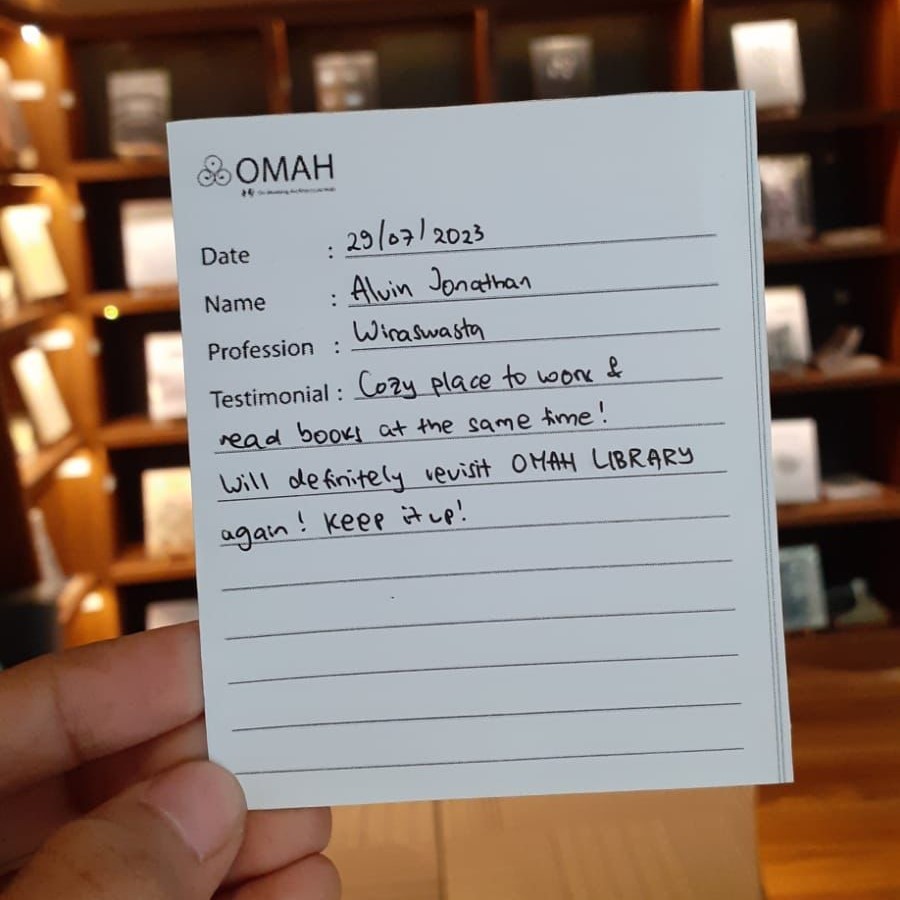 OMAH
Date : 29/07/2023
Name : Alvin Jonathan
Profession : Wiraswasta
Testimonial : Cozy place to work &
read books at the same time!
Will definitely revisit OMAH LIBRARY
again! Keep it up!